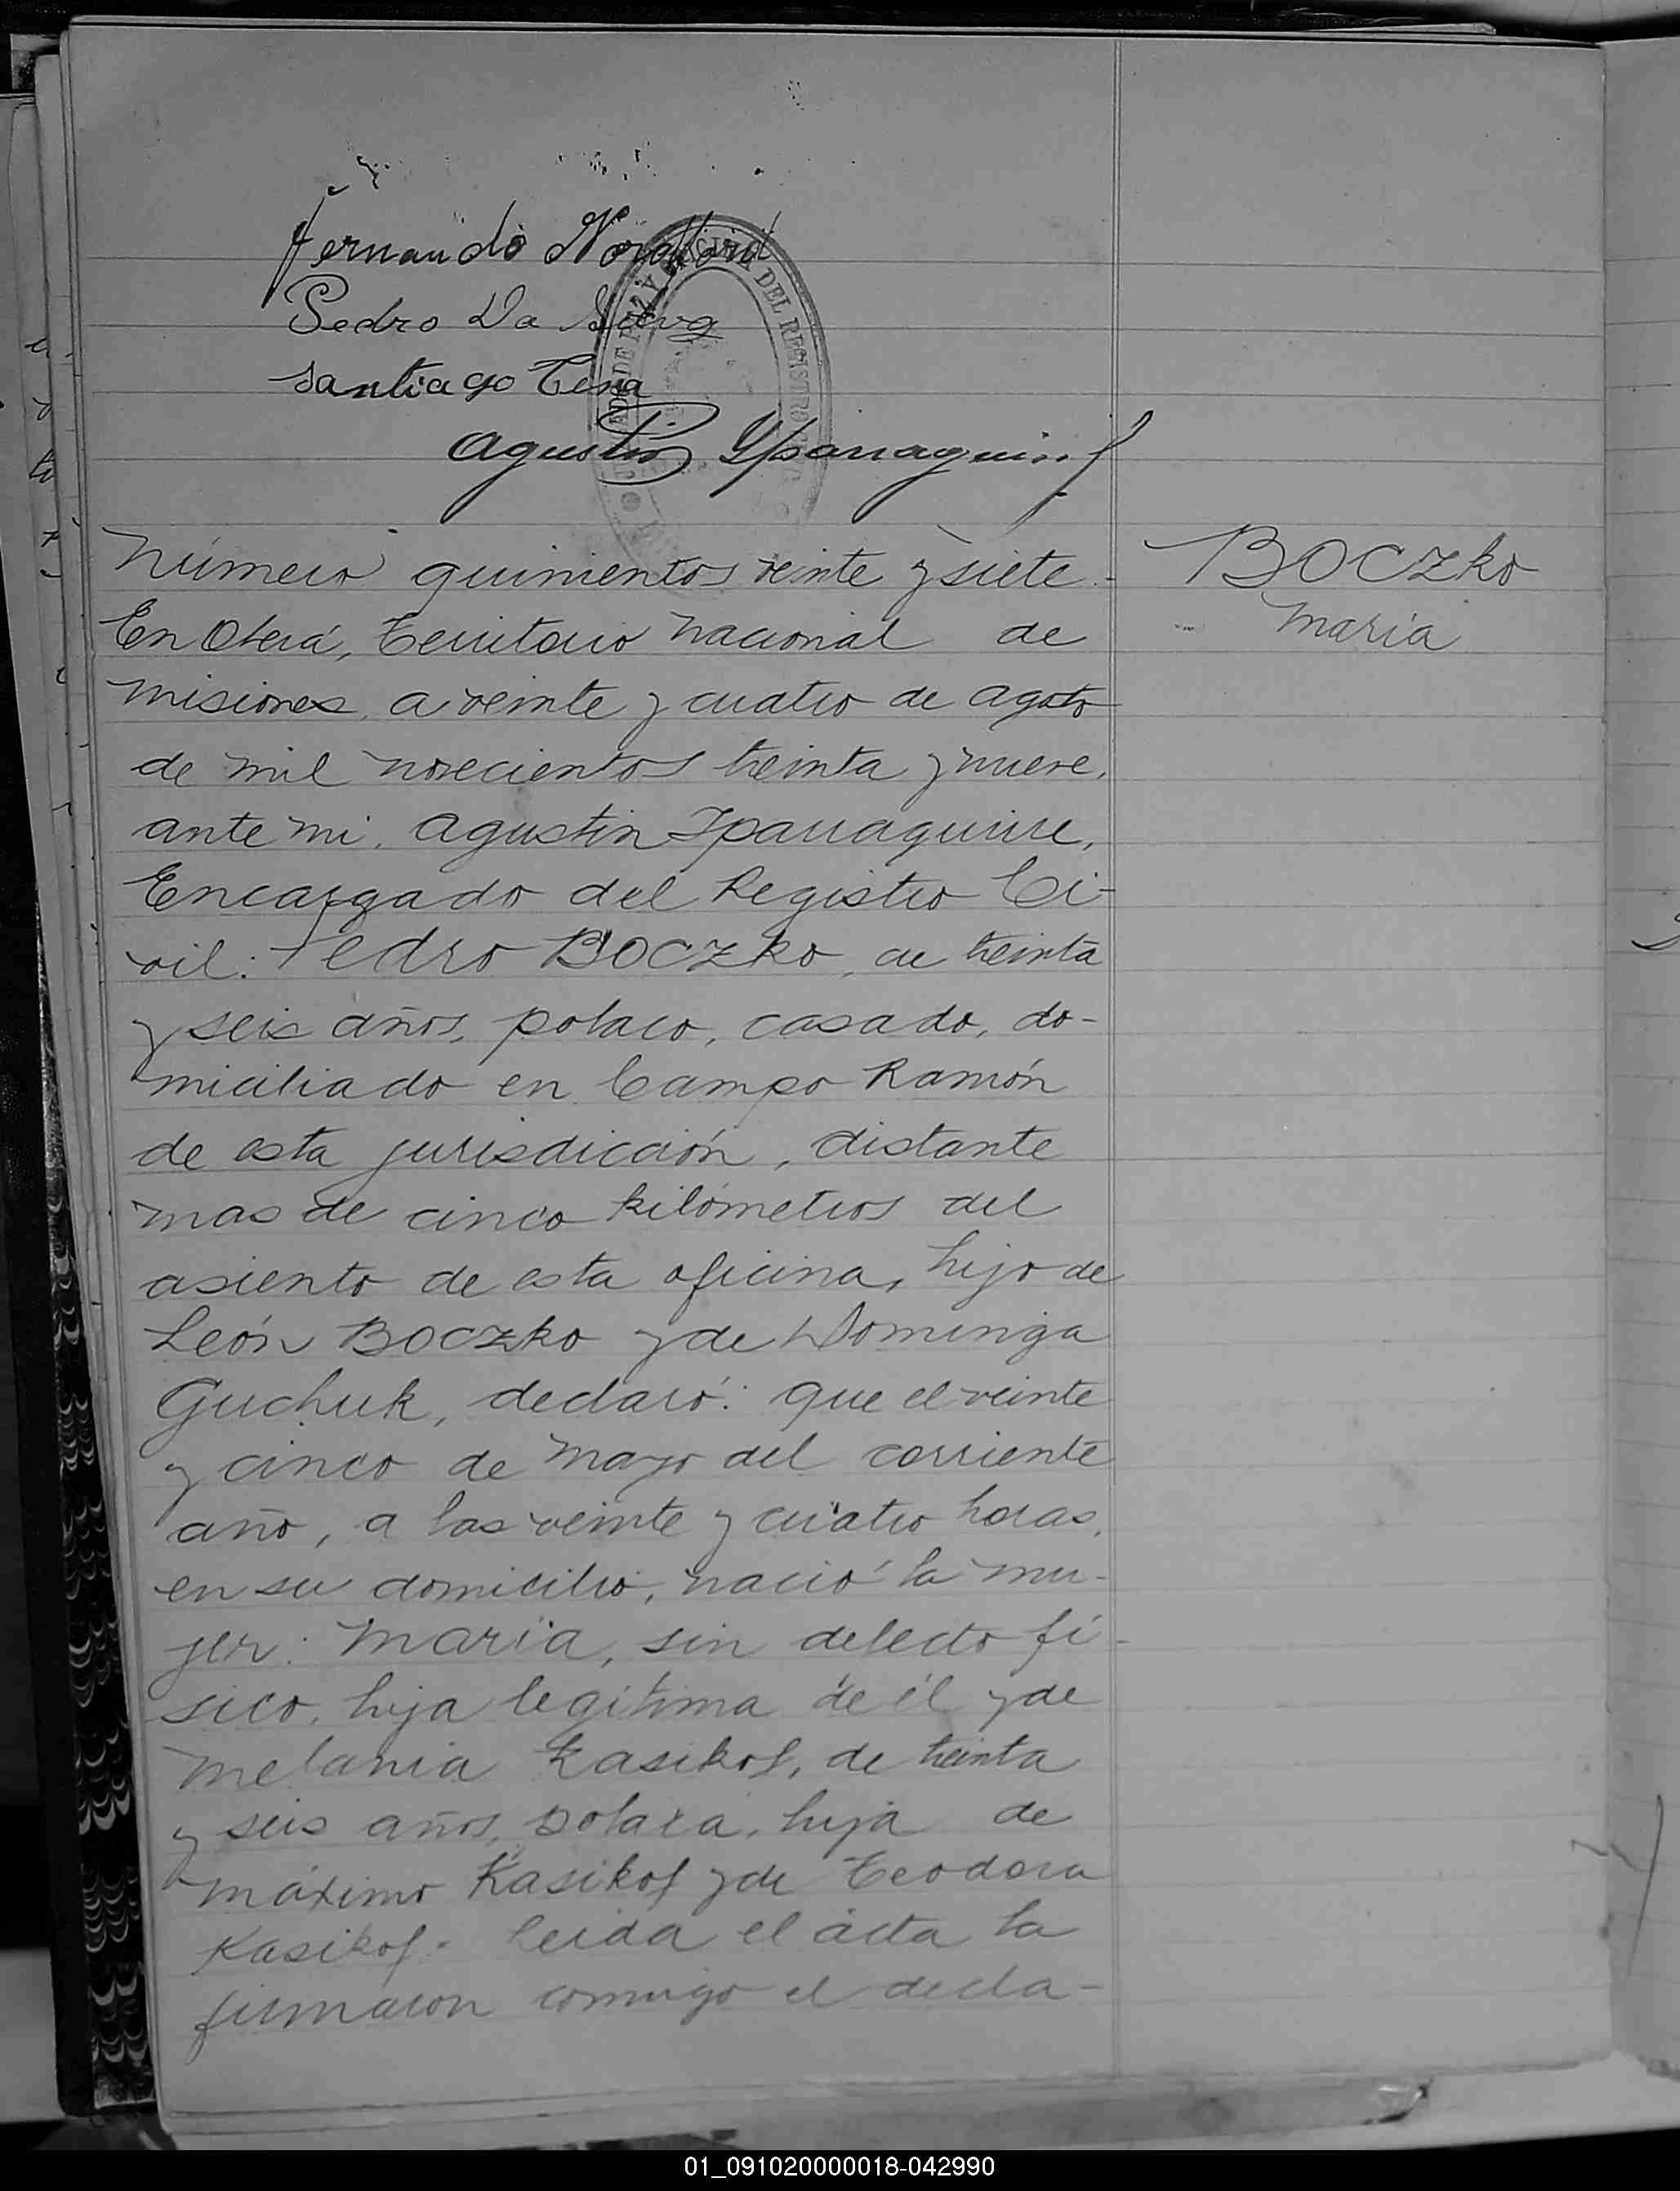 Fernando
Pedro Da Silva
Santiago Tena
Agustin Yparraguirre
JUZGADO DE PAZ Y OFICINA DEL REGISTRO CIVIL
Número quinientos veinte y siete.-
BOCZKO
María
En Oberá, Territorio nacional de
misiones, a veinte y cuatro de agosto
de mil novecientos treinta y nueve,
ante mi, Agustin Yparraguirre,
Encargado del Registro Ci-
vil: Pedro BOCZKO, de treinta
y seis años, polaco, casado, do-
miciliado en Campo Ramón
de esta jurisdicción, distante
mas de cinco kilómetros del
asiento de esta oficina, hijo de
León BOCZKO y de Dominga
Guchuk, declaró: que el veinte
y cinco de mayo del corriente
año, a las veinte y cuatro horas,
en su domicilio, nació la mu-
jer: María, sin defecto fí-
sico, hija legítima de él y de
melania Kasikof, de treinta
y seis años, polaca, hija de
máximo Kasikof y de Teodora
Kasikof. Leida el acta la
firmaron conmigo el decla-
01_091020000018-042990